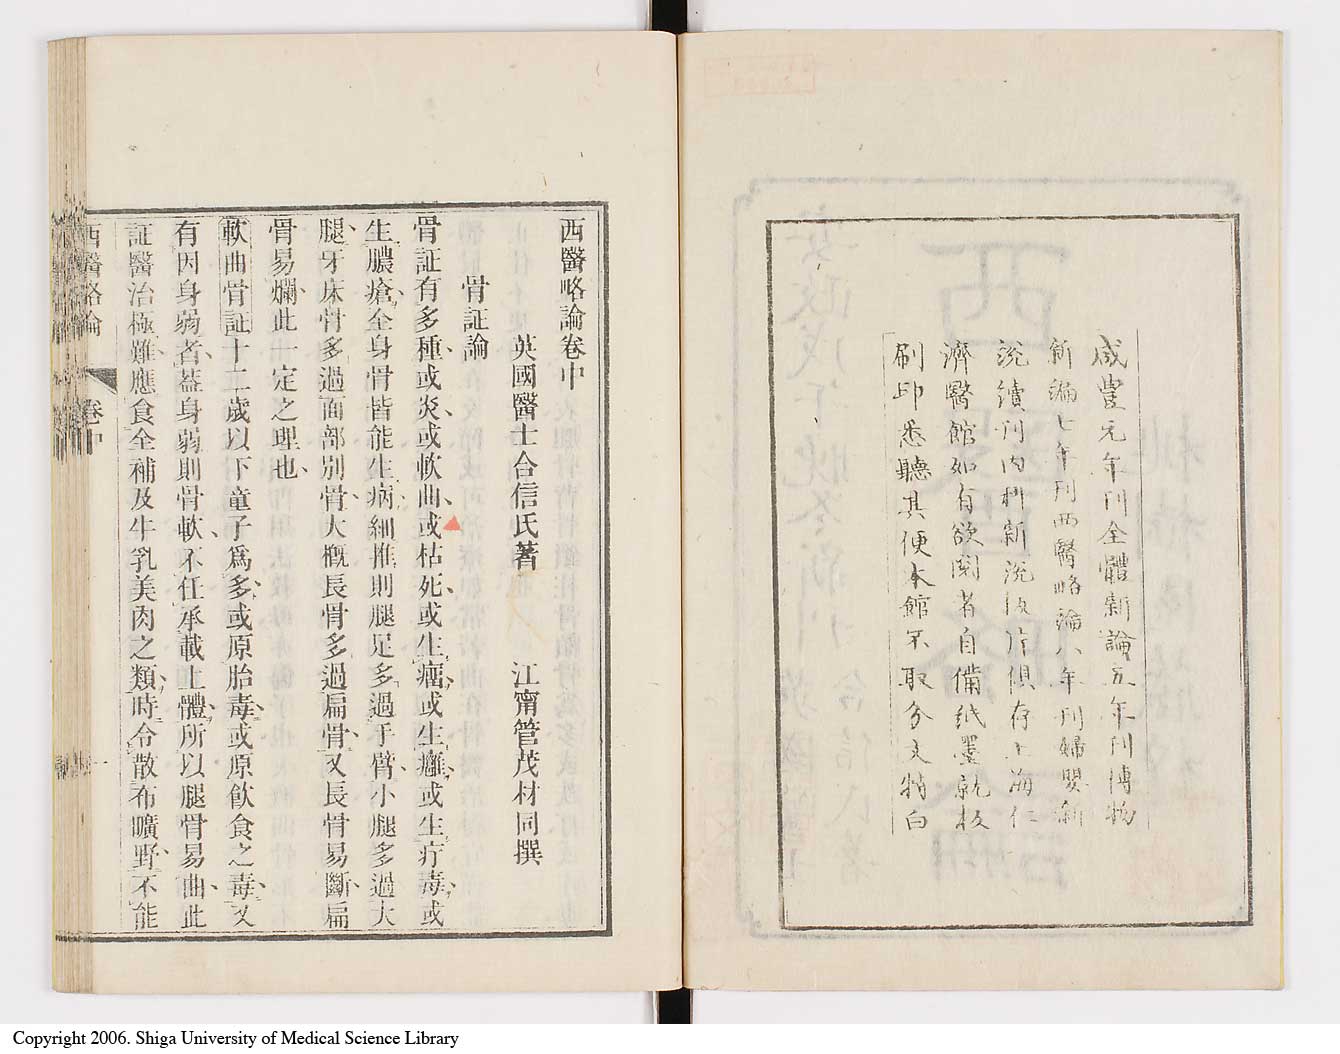 咸豐元年刊全體新論五年刊博物
新編七年刊西醫略論八年刊婦嬰新
說續刊內科新說板片俱存上海仁
濟醫館如有欲閱者自備紙墨就板
刷印悉聽其便本館不取分文特白
西醫略論卷中
英國醫士合信氏著 江甯管茂材同撰
骨証論
骨証有多種、或炎或軟曲或枯死或生瘤或生癰或生疔毒或
生膿瘡全身骨皆能生病細推則腿足多過手臂、小腿多過大
腿、牙床骨多過面部別骨大概長骨多過扁骨又長骨易斷扁
骨易爛此一定之理也
軟曲骨証十二歲以下童子為多或原胎毒或原飲食之毒又
有因身弱者蓋身弱則骨軟不任承載上體所以腿骨易曲此
証醫治極難應食全補及牛乳美肉之類時令散布曠野不能
西醫略論 卷中
Copyright 2006. Shiga University of Medical Science Library